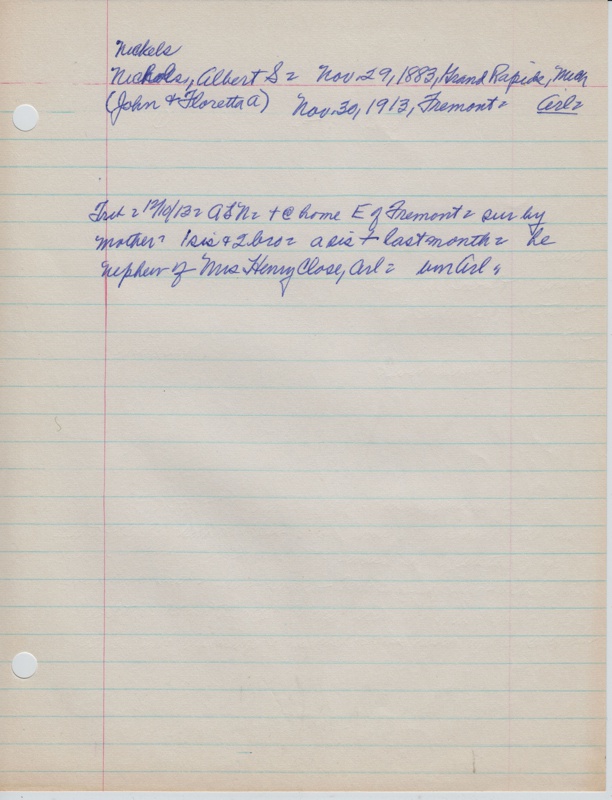 Nickels
Nichols, Albert S= Nov. 29, 1883, Grand Rapids, Mich
(John & Floretta A) Nov. 30, 1913, Fremont= Arl=
= 12/10/13= A S N= + @ home E of Fremont= sur by
mother= 1 sis & 2 bro= a sis + last month= he
nephew of Mrs Henry Close, Arl= bur Arl=